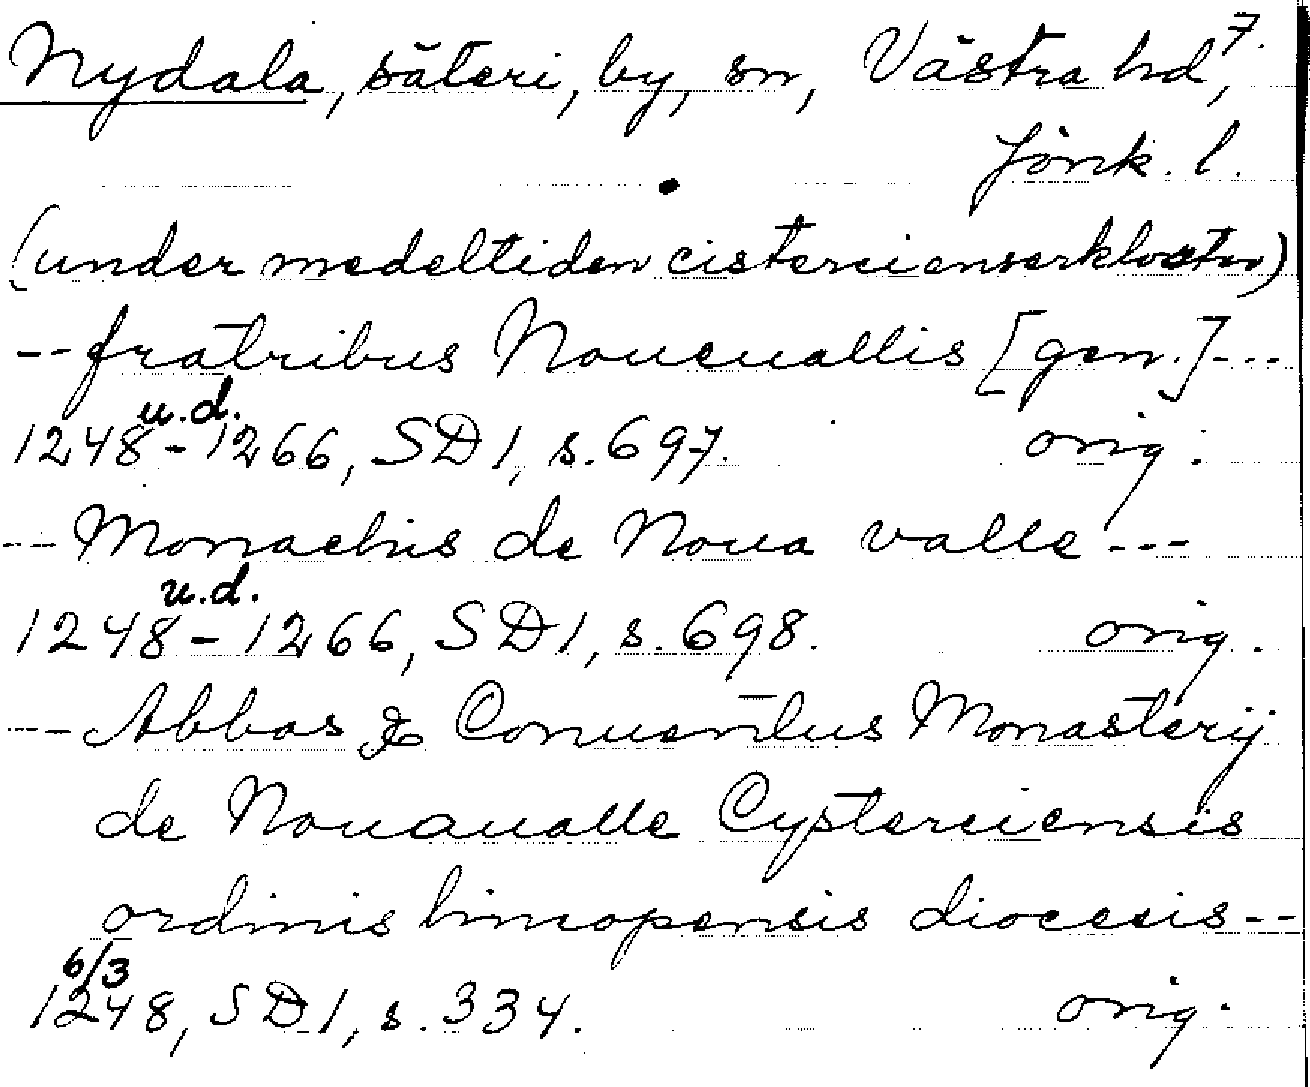 Nydala, säteri, by, sn, Västra hd, 7.
Jönk. l.
(under medeltiden cistercienserkloster)
-- fratribus Noueuallis [gen.] ---
u.d.
1248-1266, SD 1, s. 697. orig.
--- Monachis de Noua valle ---
u.d.
1248-1266, SD 1, s. 698. orig.
--- Abbas & Conuentus Monasterij
de Nouaualle Cysterciensis
ordinis lincopensis diocesis --
6/3
1248, SD 1, s. 334. orig.